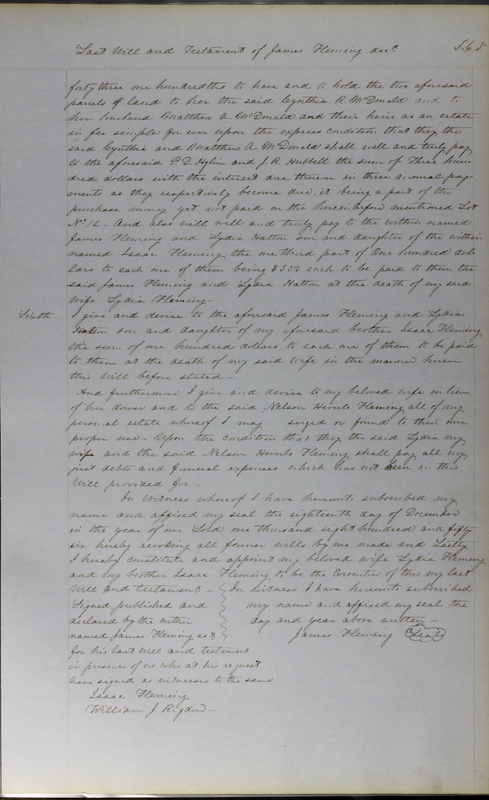 Last Will and Testament of James Fleming decd
565
forty three one hundredths to have and to hold the two aforesaid
parcels of Land to her the said Cynthia A. McDonald and to
her husband Matthew A. McDonald and their heirs as an estate
in fee simple for ever upon the express condition that they the
said Cynthia and Matthew A McDonald shall well and truly pay
to the aforesaid P. D. and J. R. Hubbell the sum of Three hun
dred dollars with the interest due thereon in three annual pay
ments as they respectively become due, it being a part of the
purchase money yet not paid on the herein before mentioned Lot
No 12. And also will well and truly pay to the within named
James Fleming and Lydia Hatton son and daughter of the within
named Isaac Fleming, the one third part of one hundred dol
lars to each one of them being $33⅓ each to be paid to them the
said James Fleming and Lydia Hatton at the death of my said
wife Lydia Fleming.
Sixth
I give and devise to the aforesaid James Fleming and Lydia
Hatton son and daughter of my aforesaid brother Isaac Fleming
the sum of one hundred dollars to each one of them to be paid
to them at the death of my said wife in the manner herein
this Will before stated -
And furthermore I give and devise to my beloved wife in lieu
of her dower and to the said Nelson Fleming all of my
personal estate whereof I may or found to their own
proper use - Upon the condition that they the said Lydia my
wife and the said Nelson Fleming shall pay all my
just debts and funeral expenses which has not been in this
Will provided for -
In Witness whereof I have hereunto subscribed my
name and affixed my seal the eighteenth day of December
in the year of our Lord one thousand eight hundred and fifty
six hereby revoking all former wills by me made and Lastly
I hereby constitute and appoint my beloved wife Lydia Fleming
and my brother Isaac Fleming to be the Executors of this my last
Will and testament - In witness I have hereunto subscribed
Signed published and my name and affixed my seal the
declared by the within day and year above written -
named James Fleming as & James Fleming Seal
for his last will and testament
in presence of us who at his request
have signed as witnesses to the same
Isaac Fleming
William J. Rigdon -